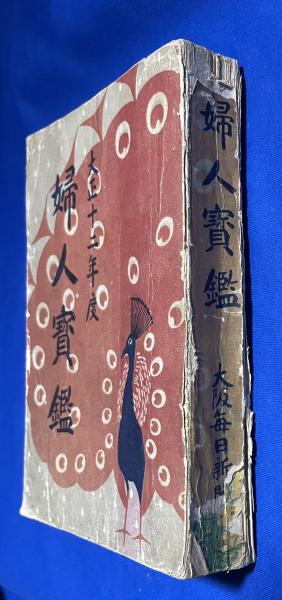 大正十二年度
婦人寶鑑
婦人寶鑑
大阪每日新